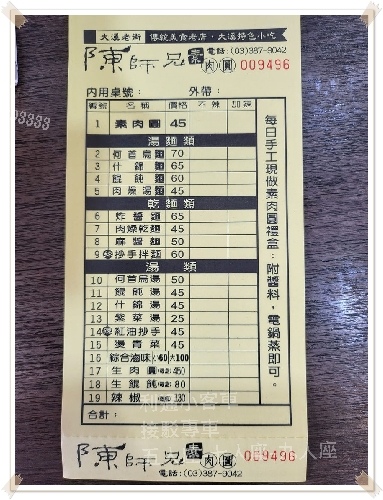 大溪老街 傳統美食老店,大溪特色小吃
陳師兄素肉圓 電話:(03)387-9042
009496
內用桌號: 外帶:
編號 名稱 價格 不辣 加辣
1 素肉圓 45
湯麵類
2 何首烏麵 70
3 什錦麵 65
4 餛飩麵 60
5 肉燥湯麵 45
乾麵類
6 炸醬麵 65
7 肉燥乾麵 45
8 麻醬麵 50
9 抄手拌麵 60
湯類
10 何首烏湯 50
11 餛飩湯 45
12 什錦湯 45
13 紫菜湯 25
14 紅油抄手 45
15 燙青菜 45
16 綜合滷味 小60 大100
17 生肉圓 450
18 生餛飩 80
19 辣椒
合計:
每日手工現做素肉圓禮盒:附醬料,電鍋蒸即可。
陳師兄素肉圓 009496
電話:(03)387-9042
利潤小客車
接駁專車
人座